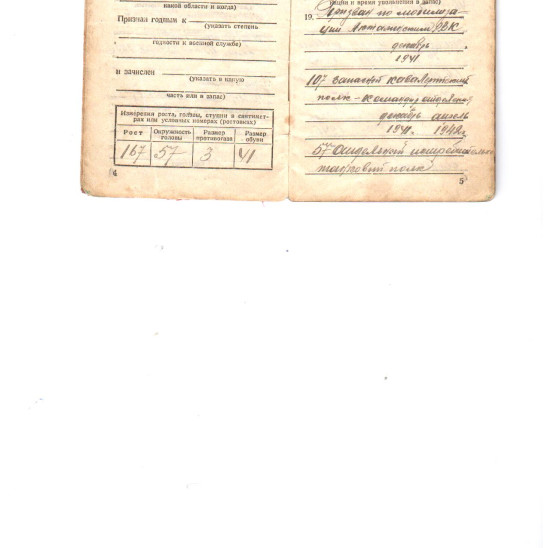 какой области и когда)
Признан годным к
(указать степень
годности к военной службе)
и зачислен
(указать в какую
часть или в запас)
Измерения роста, головы, ступни в сантимет-
рах или условных номерах (ростовках)
Рост Окружность головы Размер противогаза Размер обуви
167 57 3 41
4
19. Призван по мобилиза-
ции
РВК
декабрь
1941
107 запасной кавалерийский
полк - командир отделения
декабрь апрель
1941. 1942г.
57
полк
5